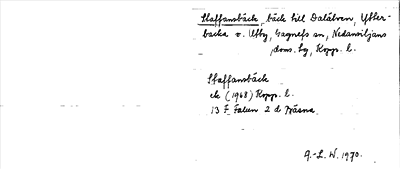 Staffansbäck, bäck till Dalälven, Ytter-
backa o. Utby, Gagnefs sn, Nedansiljans
doms. hg, Kopp. l.
Staffansbäck
ek (1968) Kopp. l.
13 F Falun 2 d Bäsna
A.-L. W. 1970.